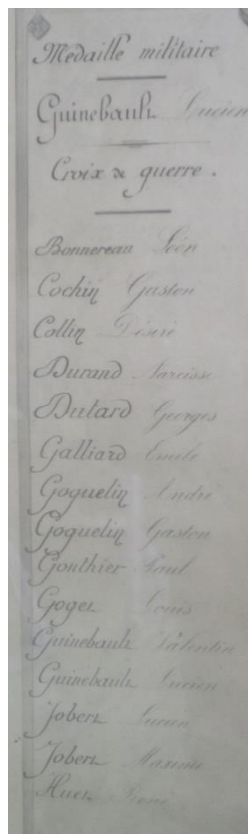 Médaille militaire
Guinebault Lucien
Croix de guerre.
Bonnereau Léon
Cochin Gaston
Collin Désiré
Durand Narcisse
Dutard Georges
Galliard Emile
Goguelin André
Goguelin Gaston
Gonthier Paul
Goget Louis
Guinebault Valentin
Guinebault Lucien
Jobert Lucien
Jobert Maxime
Huet René